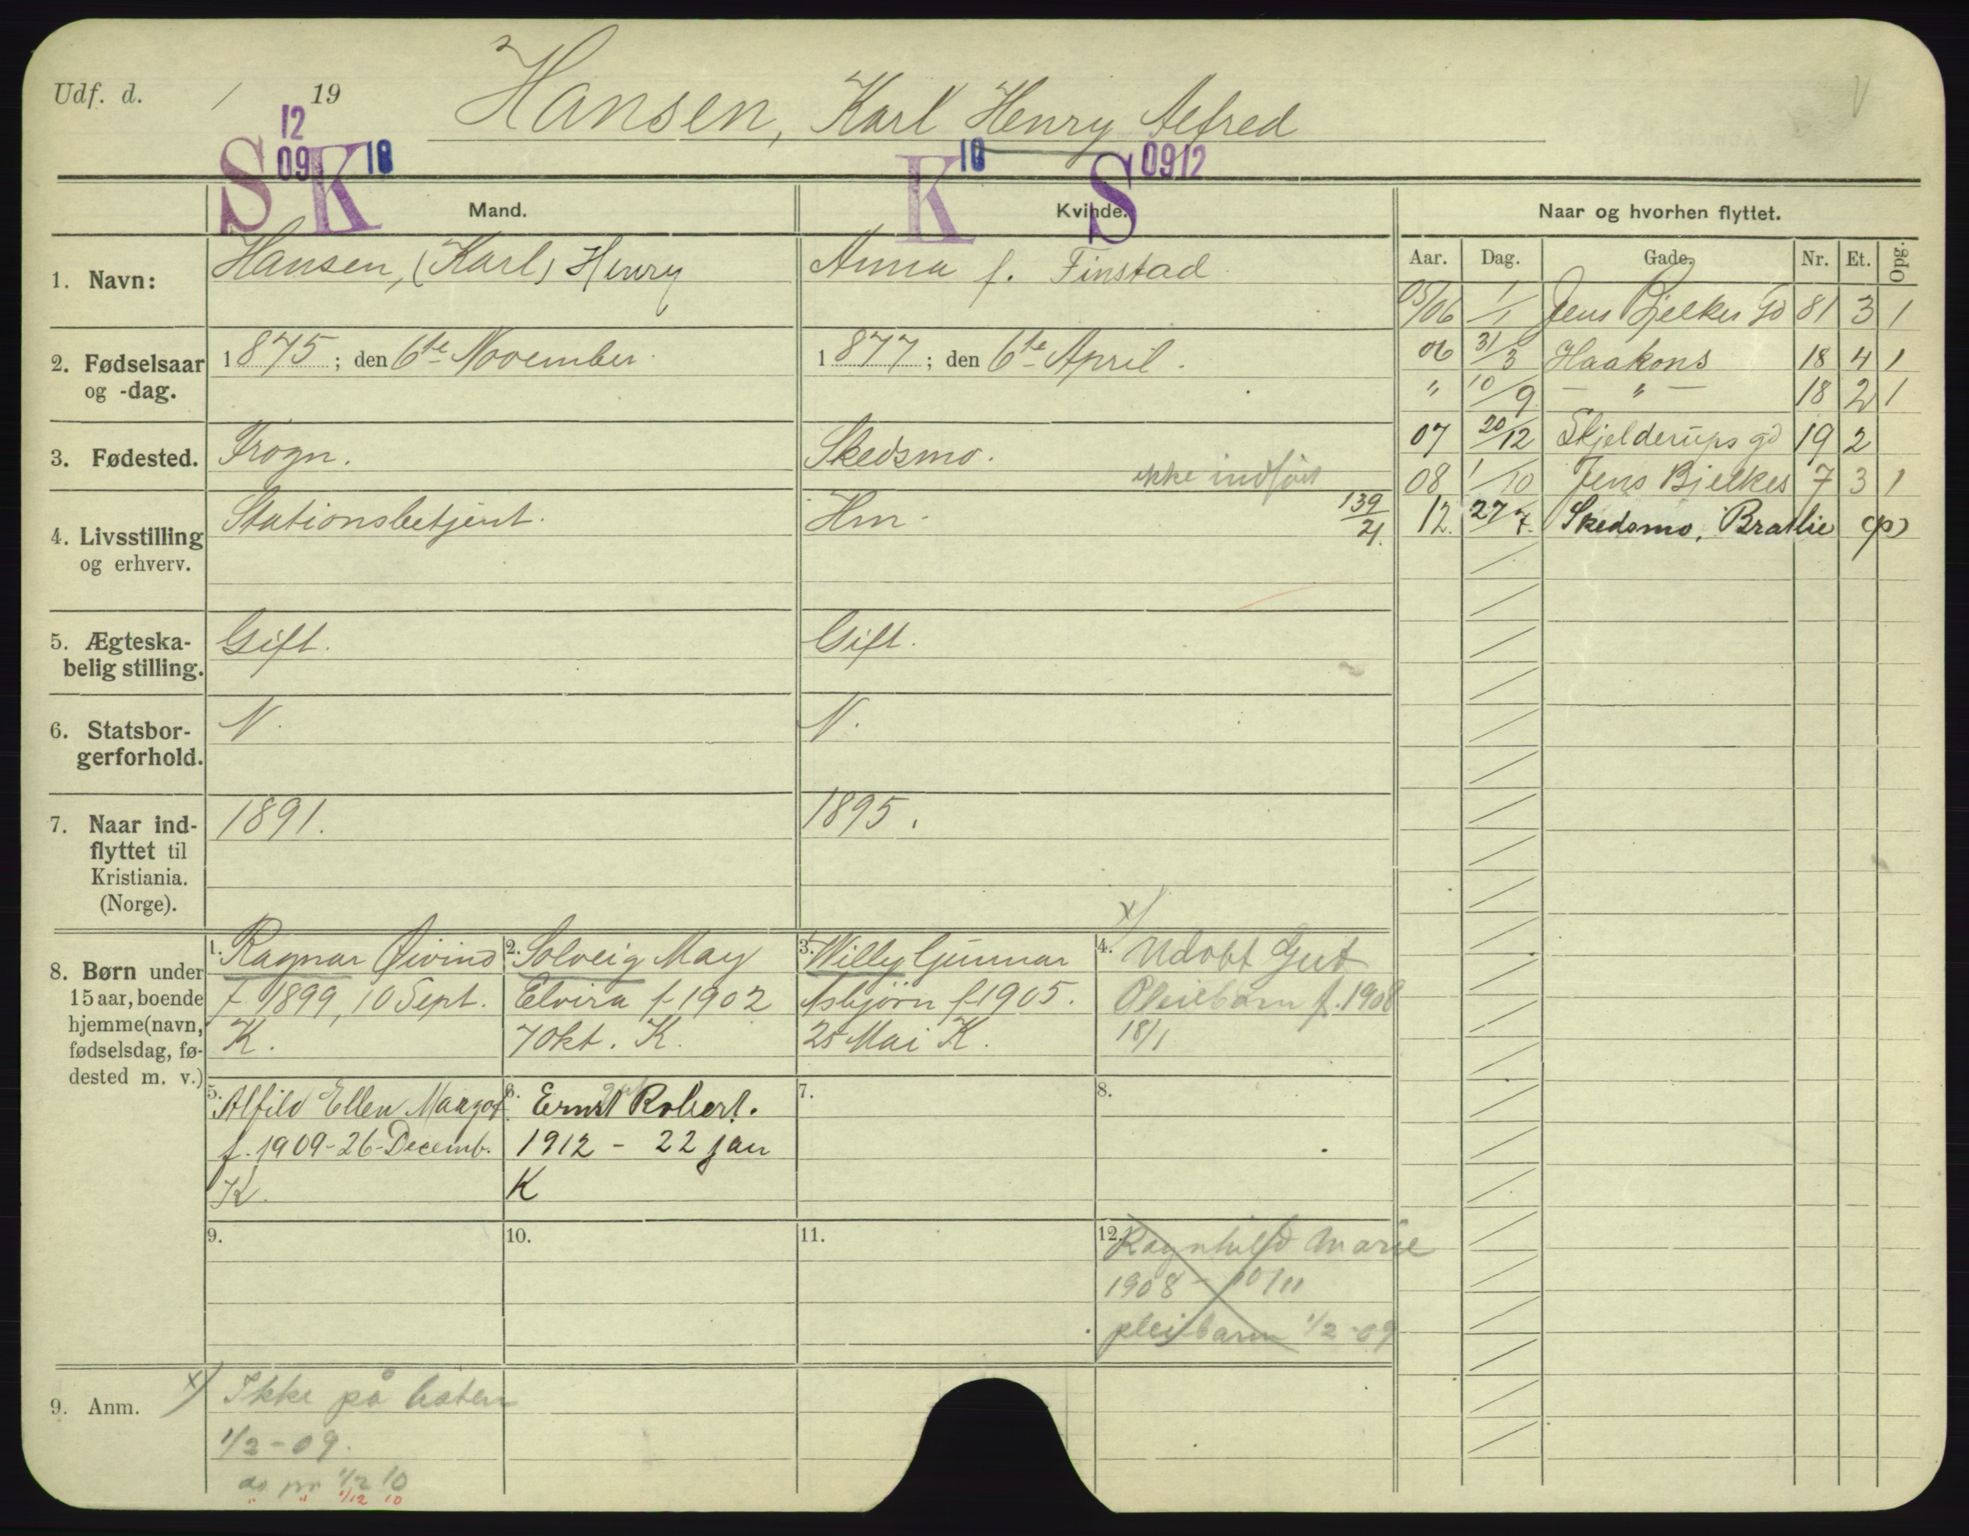 Udf. d. / 19
Hansen, Karl Henry Alfred
S 12 09 K 10
K 10 S 0912
Mand.
Kvinde.
Naar og hvorhen flyttet.
Aar. Dag. Gade. Nr. Et. Opg.
1. Navn:
Hansen, (Karl) Henry
Anna f. Finstad
2. Fødselsaar
og -dag.
1875; den 6te November.
1877; den 6te April.
3. Fødested.
Frogn.
Skedsmo.
ikke indført
4. Livsstilling
og erhverv.
Stationsbetjent.
Hm.
139/21.
5. Ægteska-
belig stilling.
Gift.
Gift.
6. Statsbor-
gerforhold.
N.
N.
7. Naar ind-
flyttet til
Kristiania.
(Norge).
1891.
1895.
05/06 1/1 Jens Bjelkes Gd 81 3 1
06 31/3 Haakons 18 4 1
" 10/9 — " — 18 2 1
07 20/12 Skjelderups gd 19 2
08 1/10 Jens Bjelkes 7 3 1
12. 27/7. Skedsmo, Bratlie (p)
8. Børn under
15 aar, boende
hjemme (navn,
fødselsdag, fø-
dested m. v.)
1. Ragnar Øivind
f 1899, 10 Sept.
K.
2. Solveig May
Elvira f 1902
7 Okt. K.
3. Willy Gunnar
Asbjørn f 1905.
25 Mai K.
x)
4. Udøbt Gut
Pleiebarn f. 1908
18/1
5. Alfild Ellen Margot
f. 1909 - 26 - Decemb.
K.
6. Ernst Robert.
1912 - 22 jan
K
7.
8.
9.
10.
11.
12. Ragnhild Marie
1908 - 10/11
pleiebarn 1/2 - 09
9. Anm.
x) Ikke på listen
1/2 - 09.
do pr 1/2 10
" " 1/12 10